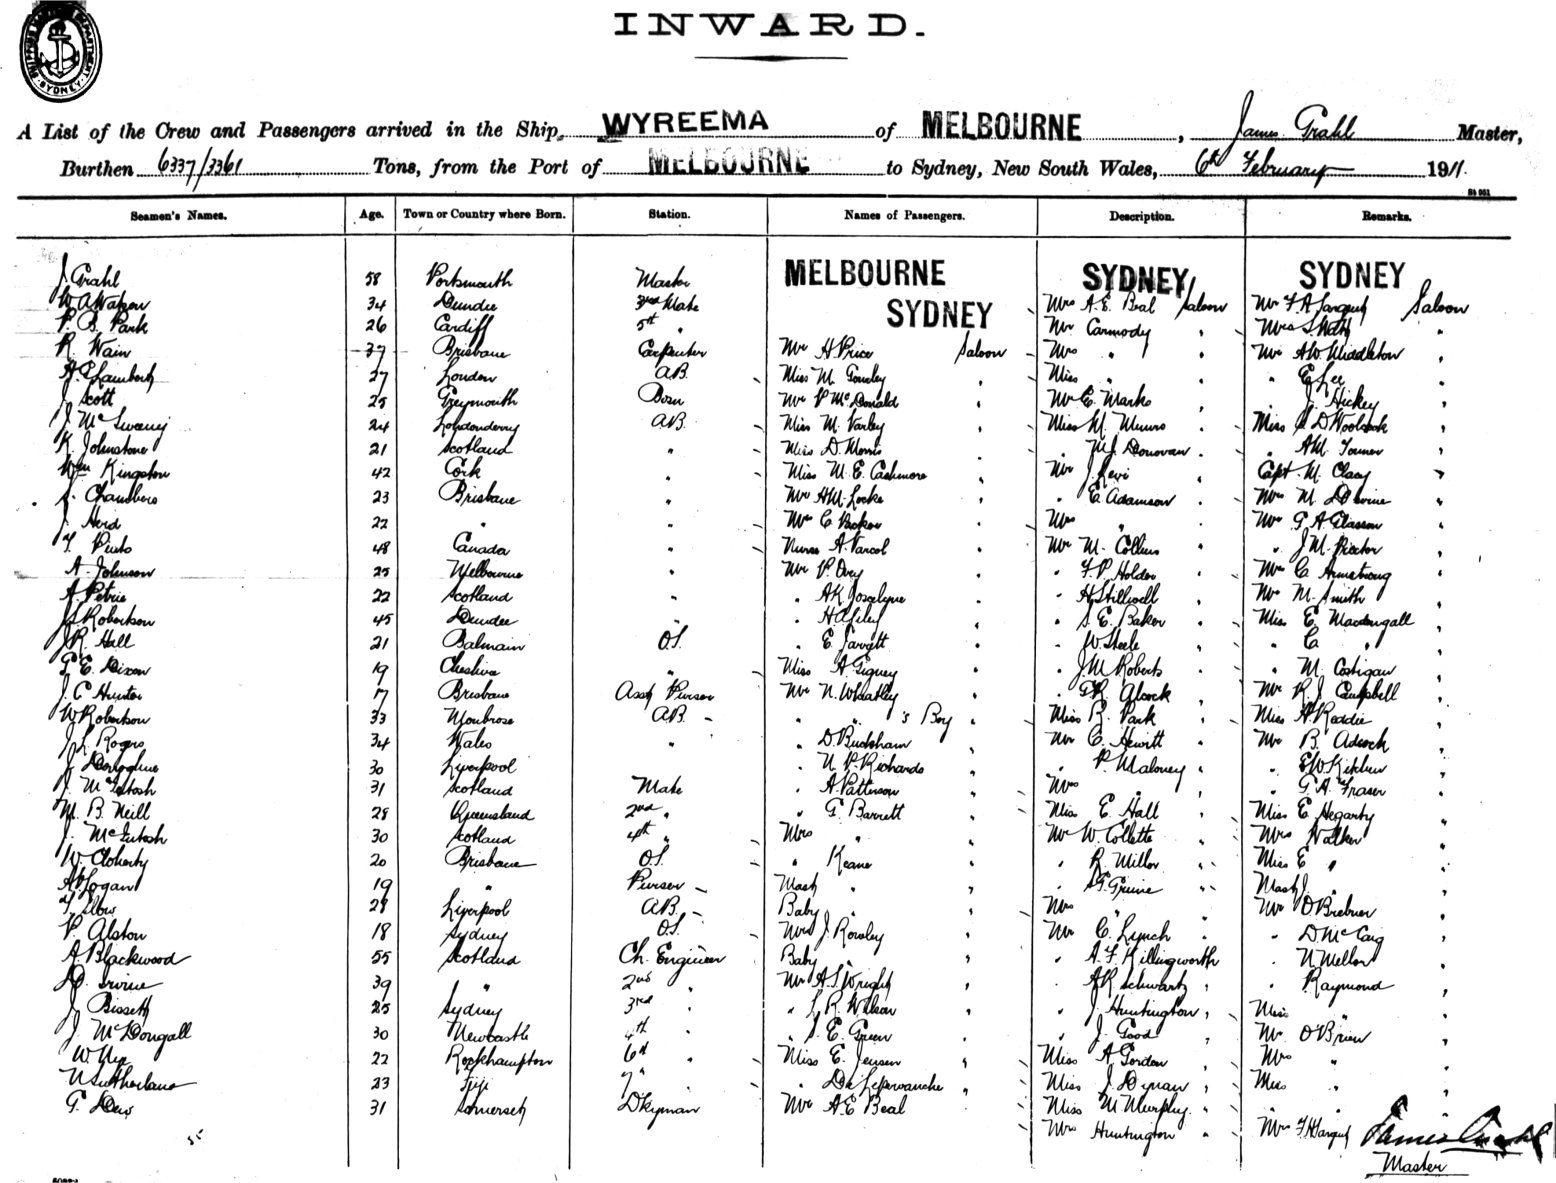 SHIPPING MASTER'S DEPARTMENT. SYDNEY.
INWARD.
A List of the Crew and Passengers arrived in the Ship, WYREEMA of MELBOURNE, James Grahl Master,
Burthen 6337/3361 Tons, from the Port of MELBOURNE to Sydney, New South Wales, 6th February 1911.
Seamen's Names. Age. Town or Country where Born. Station. Names of Passengers. Description. Remarks.
MELBOURNE SYDNEY SYDNEY
SYDNEY
J. Grahl 58 Portsmouth Master
W A Watson 34 Dundee 3rd Mate Mrs A. E. Beal Saloon Mr F. A. Sargent Saloon
P. B. Park 26 Cardiff 5th " Mr Carmody " Mrs "
R. Wain 37 Brisbane Carpenter Mr H Price Saloon Mrs " " Mr A W. Middleton "
Lambert 27 London A.B. Miss M. Gourley " Miss " " " E Lee "
J. Scott 25 Greymouth Bosn Mr P McDonald " Mr E. Marks " " J Hickey "
J. McSwaney 24 Londonderry A.B. Miss M. Varley " Miss M. Munro " Miss D Woolcock "
K Johnstone 21 Scotland " Miss D. Morris " " M. J. Donovan " " A M. "
Wm Kingston 42 Cork " Miss M. E. Cashmore " Mr J. Levi " Capt. M. Clacy "
S. Chambers 23 Brisbane " Mr A M. Locke " " E. Adamson " Mrs M Devine "
J. Herd 22 " " Mr C. " Mrs " " Mr G A Glasson "
48 Canada " Nurse A. " Mr M. Collins " " J M. Proctor "
A. Johnson 25 Melbourne " Mr P. " " F. P. Holder " Mr C Armstrong "
A. Petrie 22 Scotland " " A K. Joscelyne " " H Stillwell " Mr M. Smith "
J S Robertson 45 Dundee " " H. " " S. E. Baker " Miss E. Macdougall "
J R. Hall 21 Balmain O.S. " E Jarrett " " W Steele " " C " "
G. E. Dixon 19 Cheshire " Miss A. " " J. M Roberts " " M. Costigan "
J. C Hunter 17 Brisbane Asst Purser Mr N. Wheatley " " G R. Alcock " Mr R. J. Campbell "
W Robertson 33 Montrose A.B. " " 's Boy " Miss R. Park " Miss A Reddie "
J L Rogers 34 Wales " " D. Buckham " Mr C. Hewitt " Mr B. Adcock "
J. Donoghue 30 Liverpool " N P. Richards " " P Maloney " " E W Kitchen "
J. McIntosh 31 Scotland Mate " A. Patterson " Mrs " " " G. A. Fraser "
M. B. Neill 28 Queensland 2nd " " G Barrett " Miss E. Hall " Miss E. Hegarty "
J. McIntosh 30 Scotland 4th " Mrs " " Mr W. Collette " Mrs Walker "
W. Cloherty 20 Brisbane O.S. " Keane " " R Miller " Miss E " "
Logan 19 " Purser Mast " " " " Mast J. " "
Slow 28 Liverpool A.B. Baby " " Mrs " " Mr O Brebner "
P. Alston 18 Sydney O.S. Mrs J. Rowley " Mr C. Lynch " " D. McCaig "
A. Blackwood 55 Scotland Ch. Engineer Baby " " " A. F. Killingworth " N Mellor "
D. Irvine 39 " 2nd " Mr A. S. Wright " " A R Schwartz " " Raymond "
J. Bissett 25 Sydney 3rd " " L. R. Wilson " " J. Huntington " Miss " "
J. McDougall 30 Newcastle 4th " " S. E. Green " " J. Good " Mr O'Brien "
W 22 Rockhampton 6th " Miss E. Jensen " Miss A Gordon " Mrs " "
N Sutherland 23 Fiji 7th " " De " Miss J. Dynan " Miss " "
G. Dew 31 Somerset Dkyman Mr A. E Beal " Miss M Murphy " " " "
Mrs Huntington " Mrs F. H Sargent James Grahl
Master